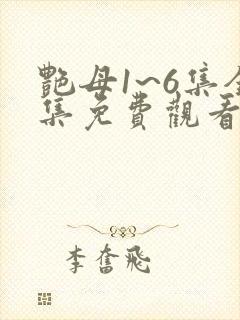 艷母1~6集全
集免費觀看
李奮飛